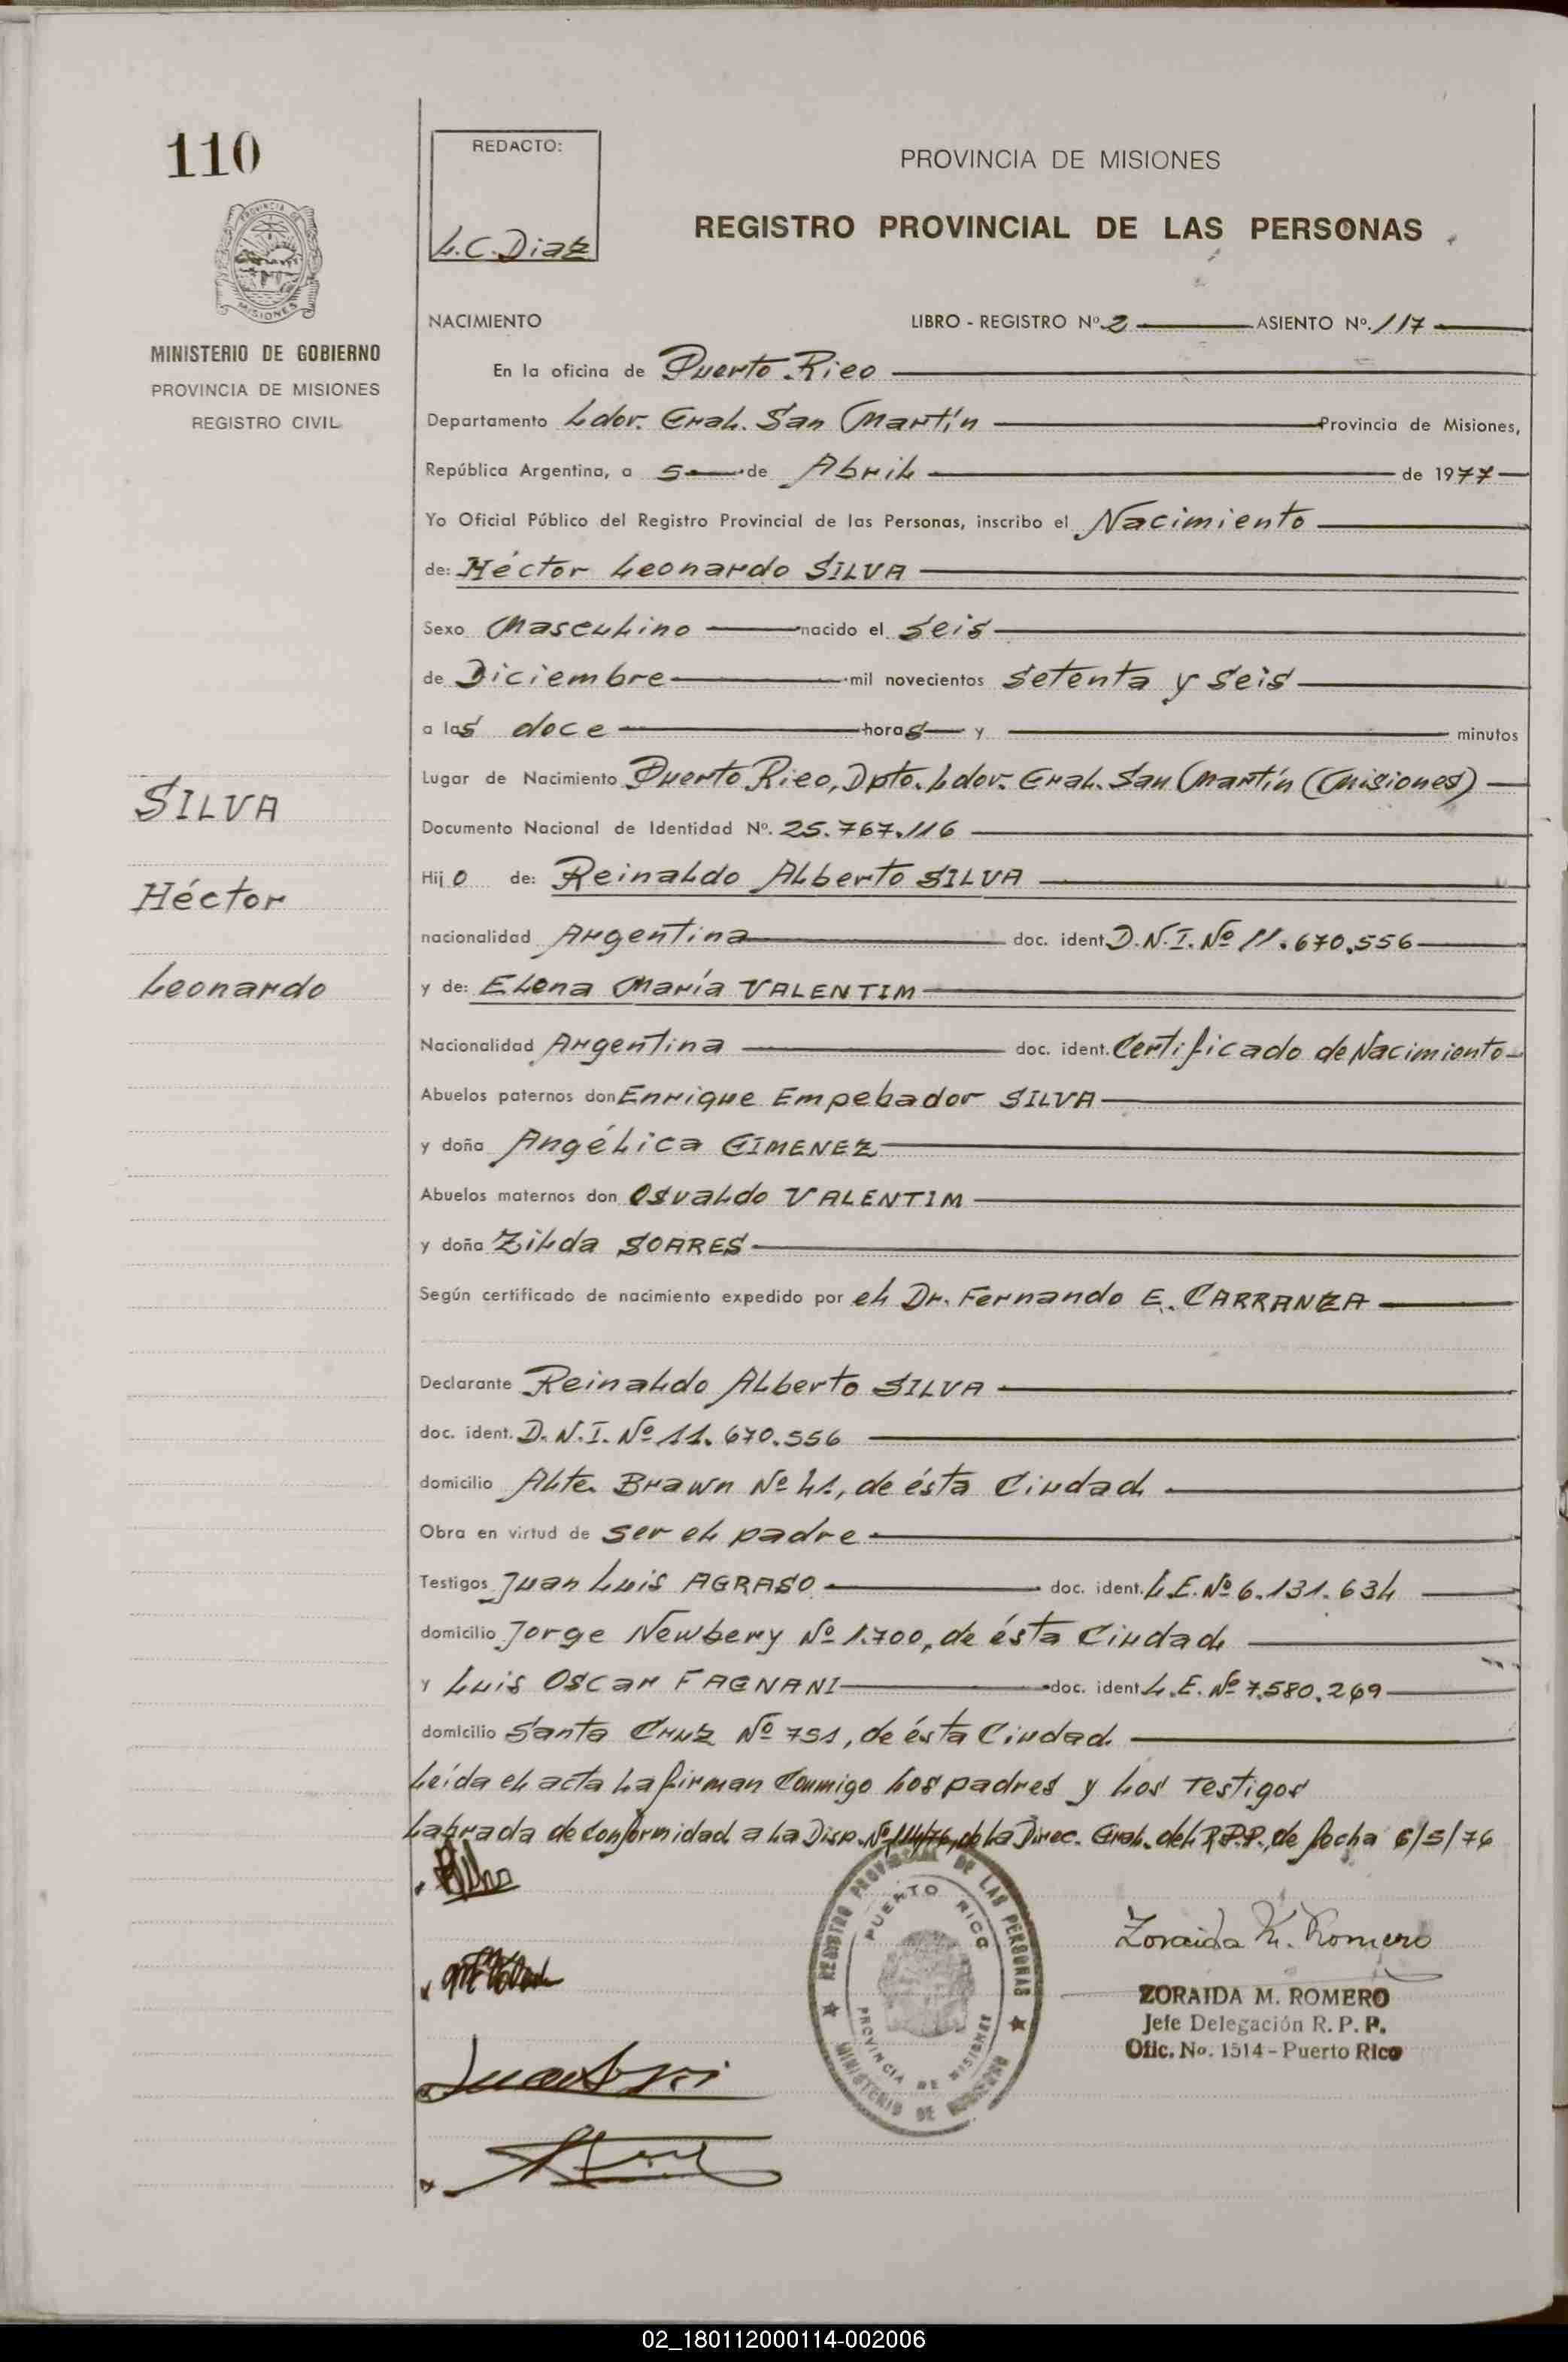 110
PROVINCIA DE MISIONES
MINISTERIO DE GOBIERNO
PROVINCIA DE MISIONES
REGISTRO CIVIL
REDACTO:
L.C. Diaz
PROVINCIA DE MISIONES
REGISTRO PROVINCIAL DE LAS PERSONAS
NACIMIENTO LIBRO - REGISTRO Nº 2 ASIENTO Nº. 117
En la oficina de Puerto Rico
Departamento Ldor. Gral. San Martín Provincia de Misiones,
República Argentina, a 5 de Abril de 1977
Yo Oficial Público del Registro Provincial de las Personas, inscribo el Nacimiento
de: Héctor Leonardo SILVA
Sexo Masculino nacido el seis
de Diciembre mil novecientos setenta y seis
a las doce horas y minutos
Lugar de Nacimiento Puerto Rico, Dpto. Ldor. Gral. San Martín (Misiones)
Documento Nacional de Identidad Nº. 25.767.116
Hijo de: Reinaldo Alberto SILVA
nacionalidad Argentina doc. ident. D.N.I. Nº 11.670.556
y de: Elena María VALENTIM
Nacionalidad Argentina doc. ident. Certificado de Nacimiento
Abuelos paternos don Enrique Empebador SILVA
y doña Angélica GIMENEZ
Abuelos maternos don Osvaldo VALENTIM
y doña Zilda SOARES
Según certificado de nacimiento expedido por el Dr. Fernando E. CARRANZA
Declarante Reinaldo Alberto SILVA
doc. ident. D.N.I. Nº 11.670.556
domicilio Alte. Brawn Nº 41, de ésta Ciudad
Obra en virtud de ser el padre
Testigos Juan Luis AGRASO doc. ident. L.E. Nº 6.131.634
domicilio Jorge Newbery Nº 1.700, de ésta Ciudad
y Luis Oscar FAGNANI doc. ident. L.E. Nº 7.580.269
domicilio Santa Cruz Nº 751, de ésta Ciudad
Leída el acta la firman conmigo los padres y los testigos
Labrada de conformidad a la Disp. Nº 114/76, de la Direc. Gral. del R.P.P., de fecha 6/5/76
REGISTRO PROVINCIAL DE LAS PERSONAS
PUERTO RICO
PROVINCIA DE MISIONES
MINISTERIO DE GOBIERNO
Zoraida M. Romero
ZORAIDA M. ROMERO
Jefe Delegación R. P. P.
Ofic. No. 1514 - Puerto Rico
SILVA
Héctor
Leonardo
02_180112000114-002006